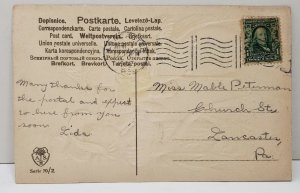 Dopisnice. Postkarte. Levelező-Lap.
Correspondenzkarte. Carte postale. Cartolina postale.
Post card. Weltpostverein. Brefkort.
Union postale universelle. Unione postale universale.
Karta korespondencyjna. Korespondenční lístek.
Brefkort. Brevkort. Tarjeta postal.
Many thanks for
the postal and expect
to hear from you
soon
Lida
Miss Mable Peterman
Church St
Lancaster
Pa.
Serie 70/2